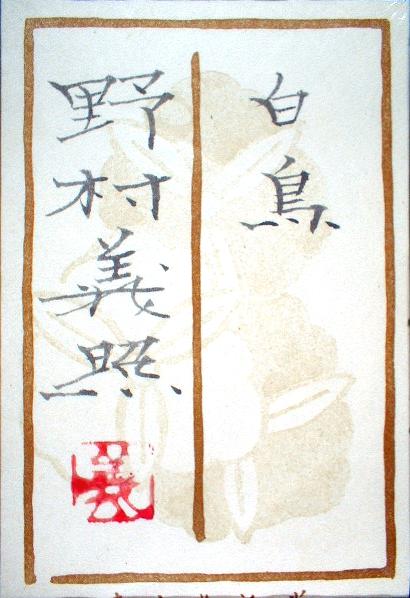 白鳥
野村義照